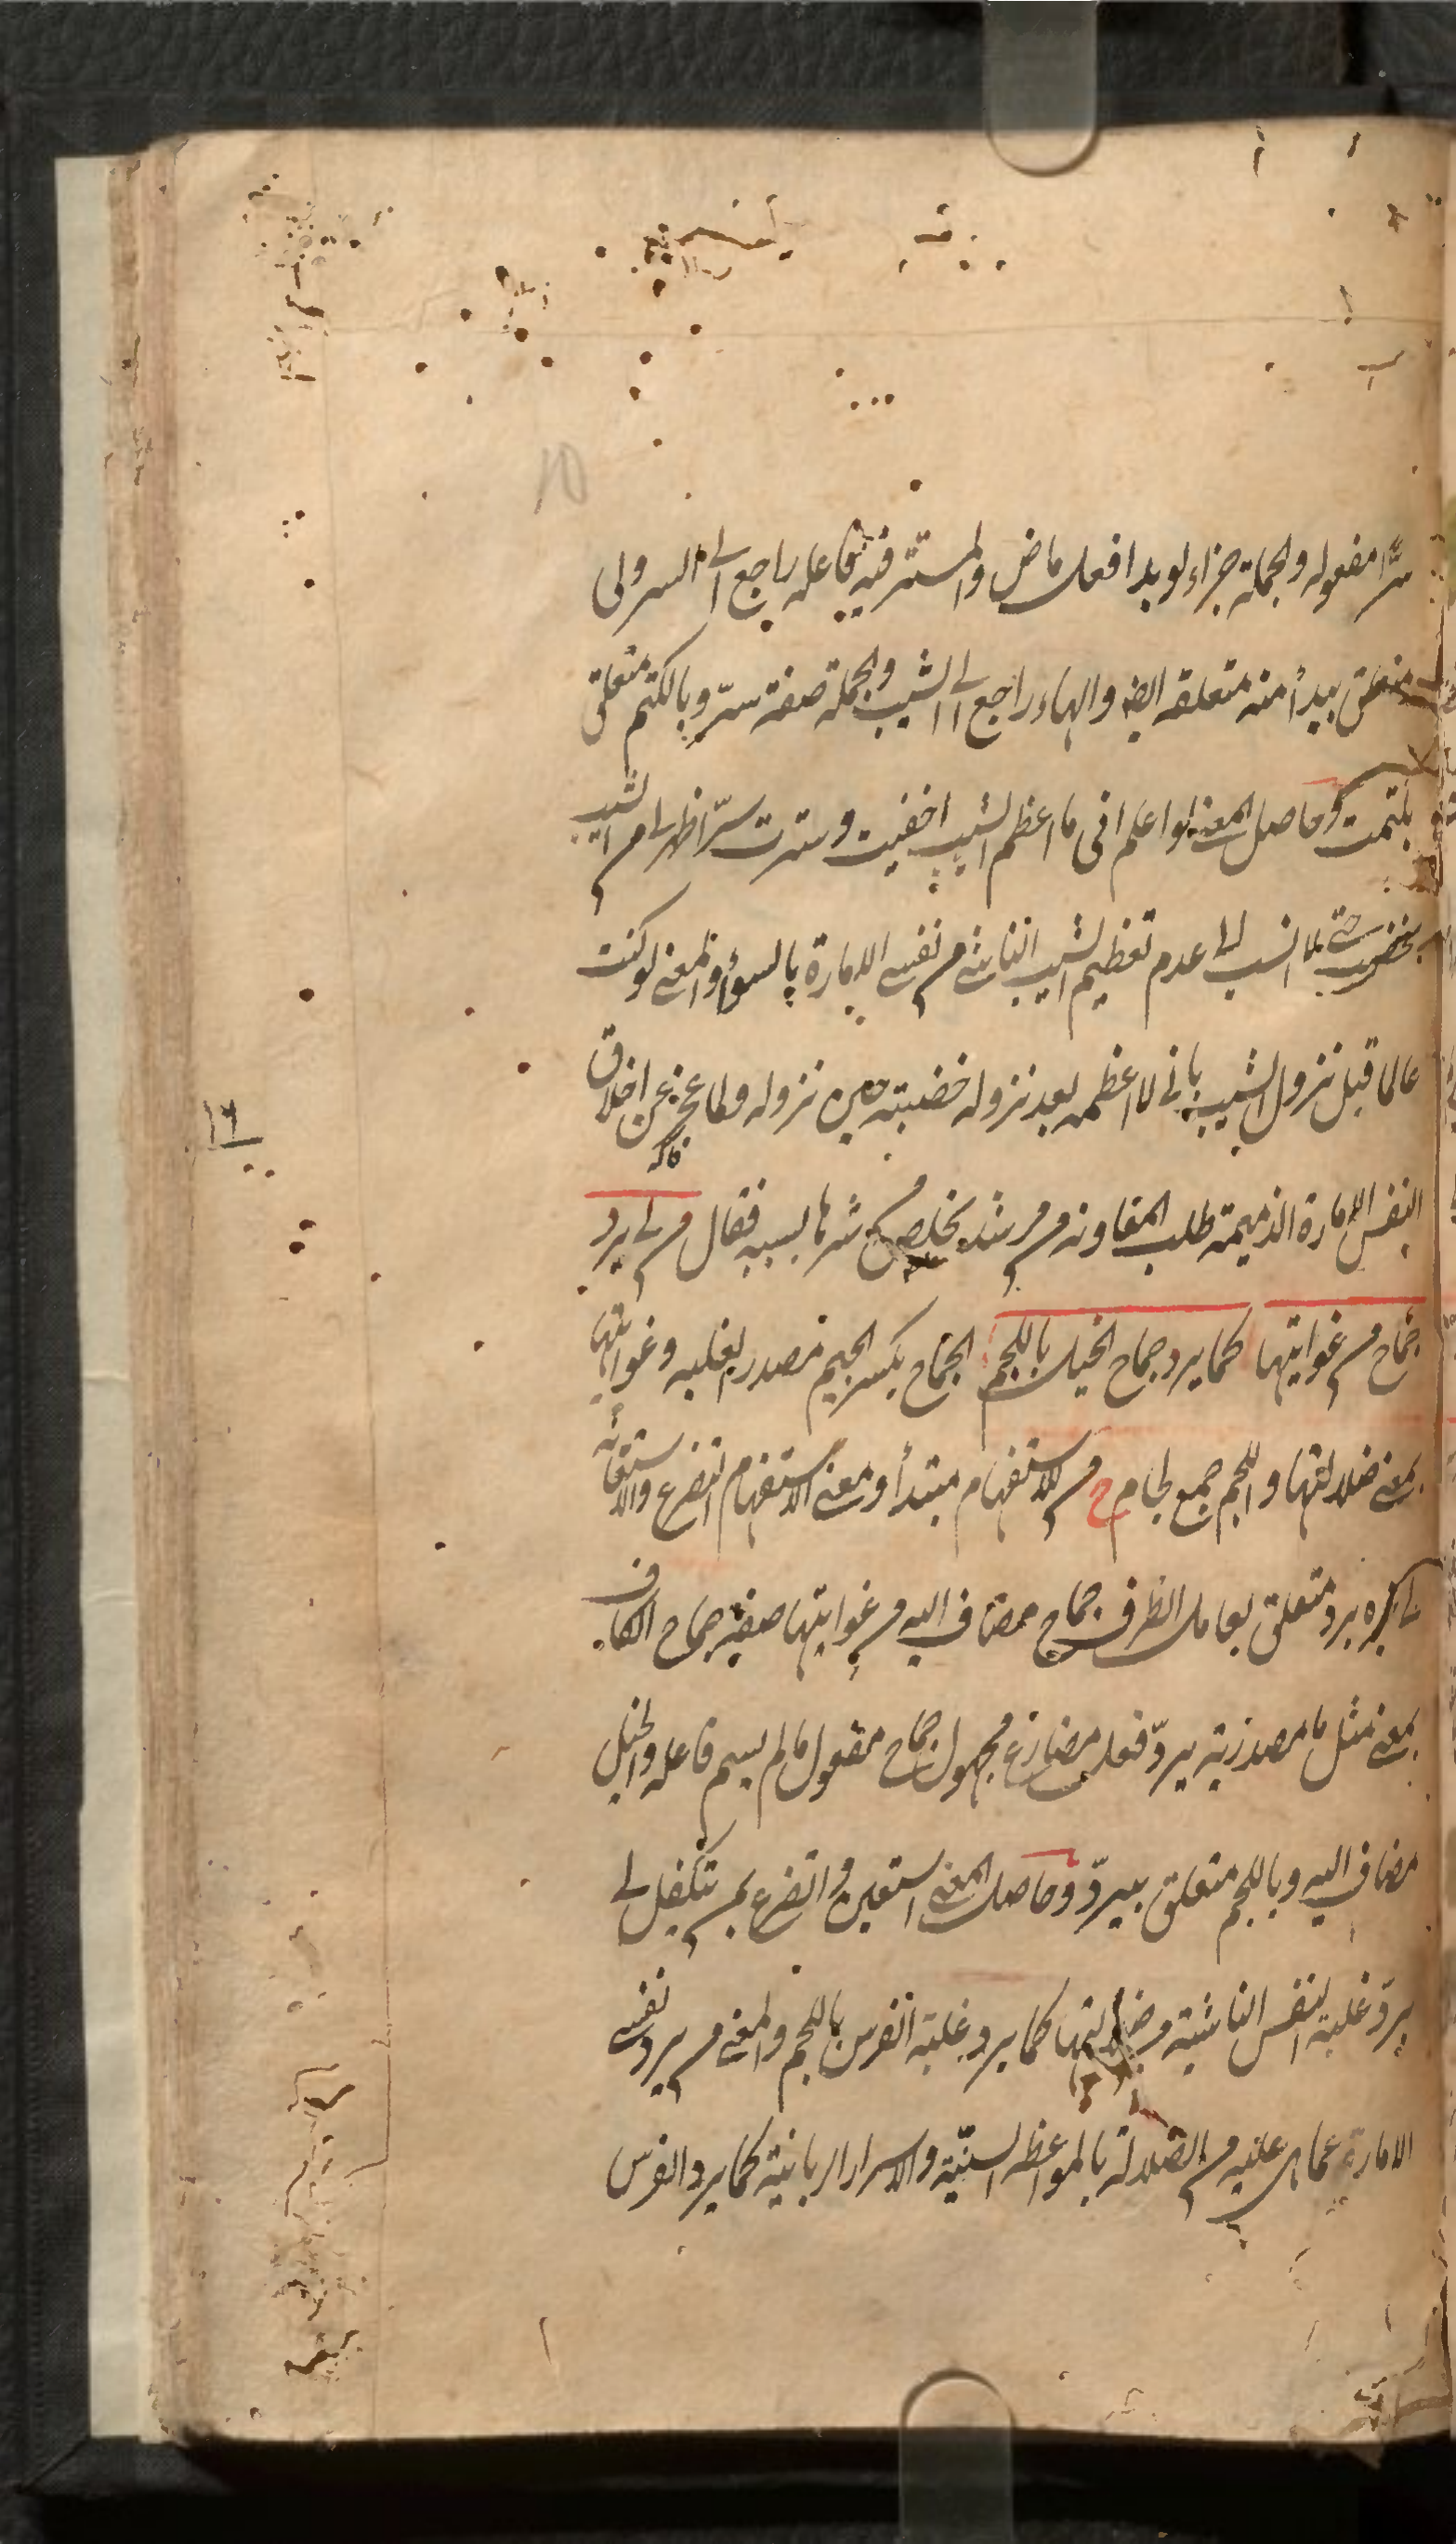 سرّا مفعوله والجملة جزاء لو بدا فعل ماض والمستتر فيه فاعله راجع الى السر ولى
متعلق ببدأ منه متعلقه ايضا والهاء راجع الى الشيب والجملة صفة سرّ وبالكتم متعلق
بكتمت وحاصل المعنى لو اعلم انى ما اعظم الشيب اخفيت وسترت سرّا ظهر لى من الشيب
بخضب حتى لا انسب الى عدم تعظيم الشيب الناشئ من نفسى الامارة بالسوء والمعنى لو كنت
عالما قبل نزول الشيب بانى لا اعظمه بعد نزوله خضبته حين نزوله ولما عجز عن اخلاق
النفس الامارة الذميمة طلب المعاونة من مرشد يخلص من شرها بسببه فقال من لى برد
جماح من غوايتها كما يرد جماح الخيل باللجم الجماح بكسر الجيم مصدر الغلبه وغوايتها
بمعنى ضلالتها واللجم جمع لجام ح من للاستفهام مبتدأ ومعنى الاستفهام التضرع والاستغاثه
لى خبره برد متعلق بعامل الظرف جماح مضاف اليه من غوايتها صفة جماح الكاف
بمعنى مثل ما مصدرية يردّ فعل مضارع مجهول جماح مفعول ما لم يسم فاعله والخيل
مضاف اليه وباللجم متعلق بيردّ وحاصل المعنى استعين واتضرع بمن يتكفل لى
بردّ غلبة النفس الناشية من ضلالتها كما يرد غلبة الفرس باللجم والمعنى من يرد نفسى
الامارة عما هى عليه من الضلالة بالمواعظ السنيّة والاسرار الربانية كما يرد الفرس